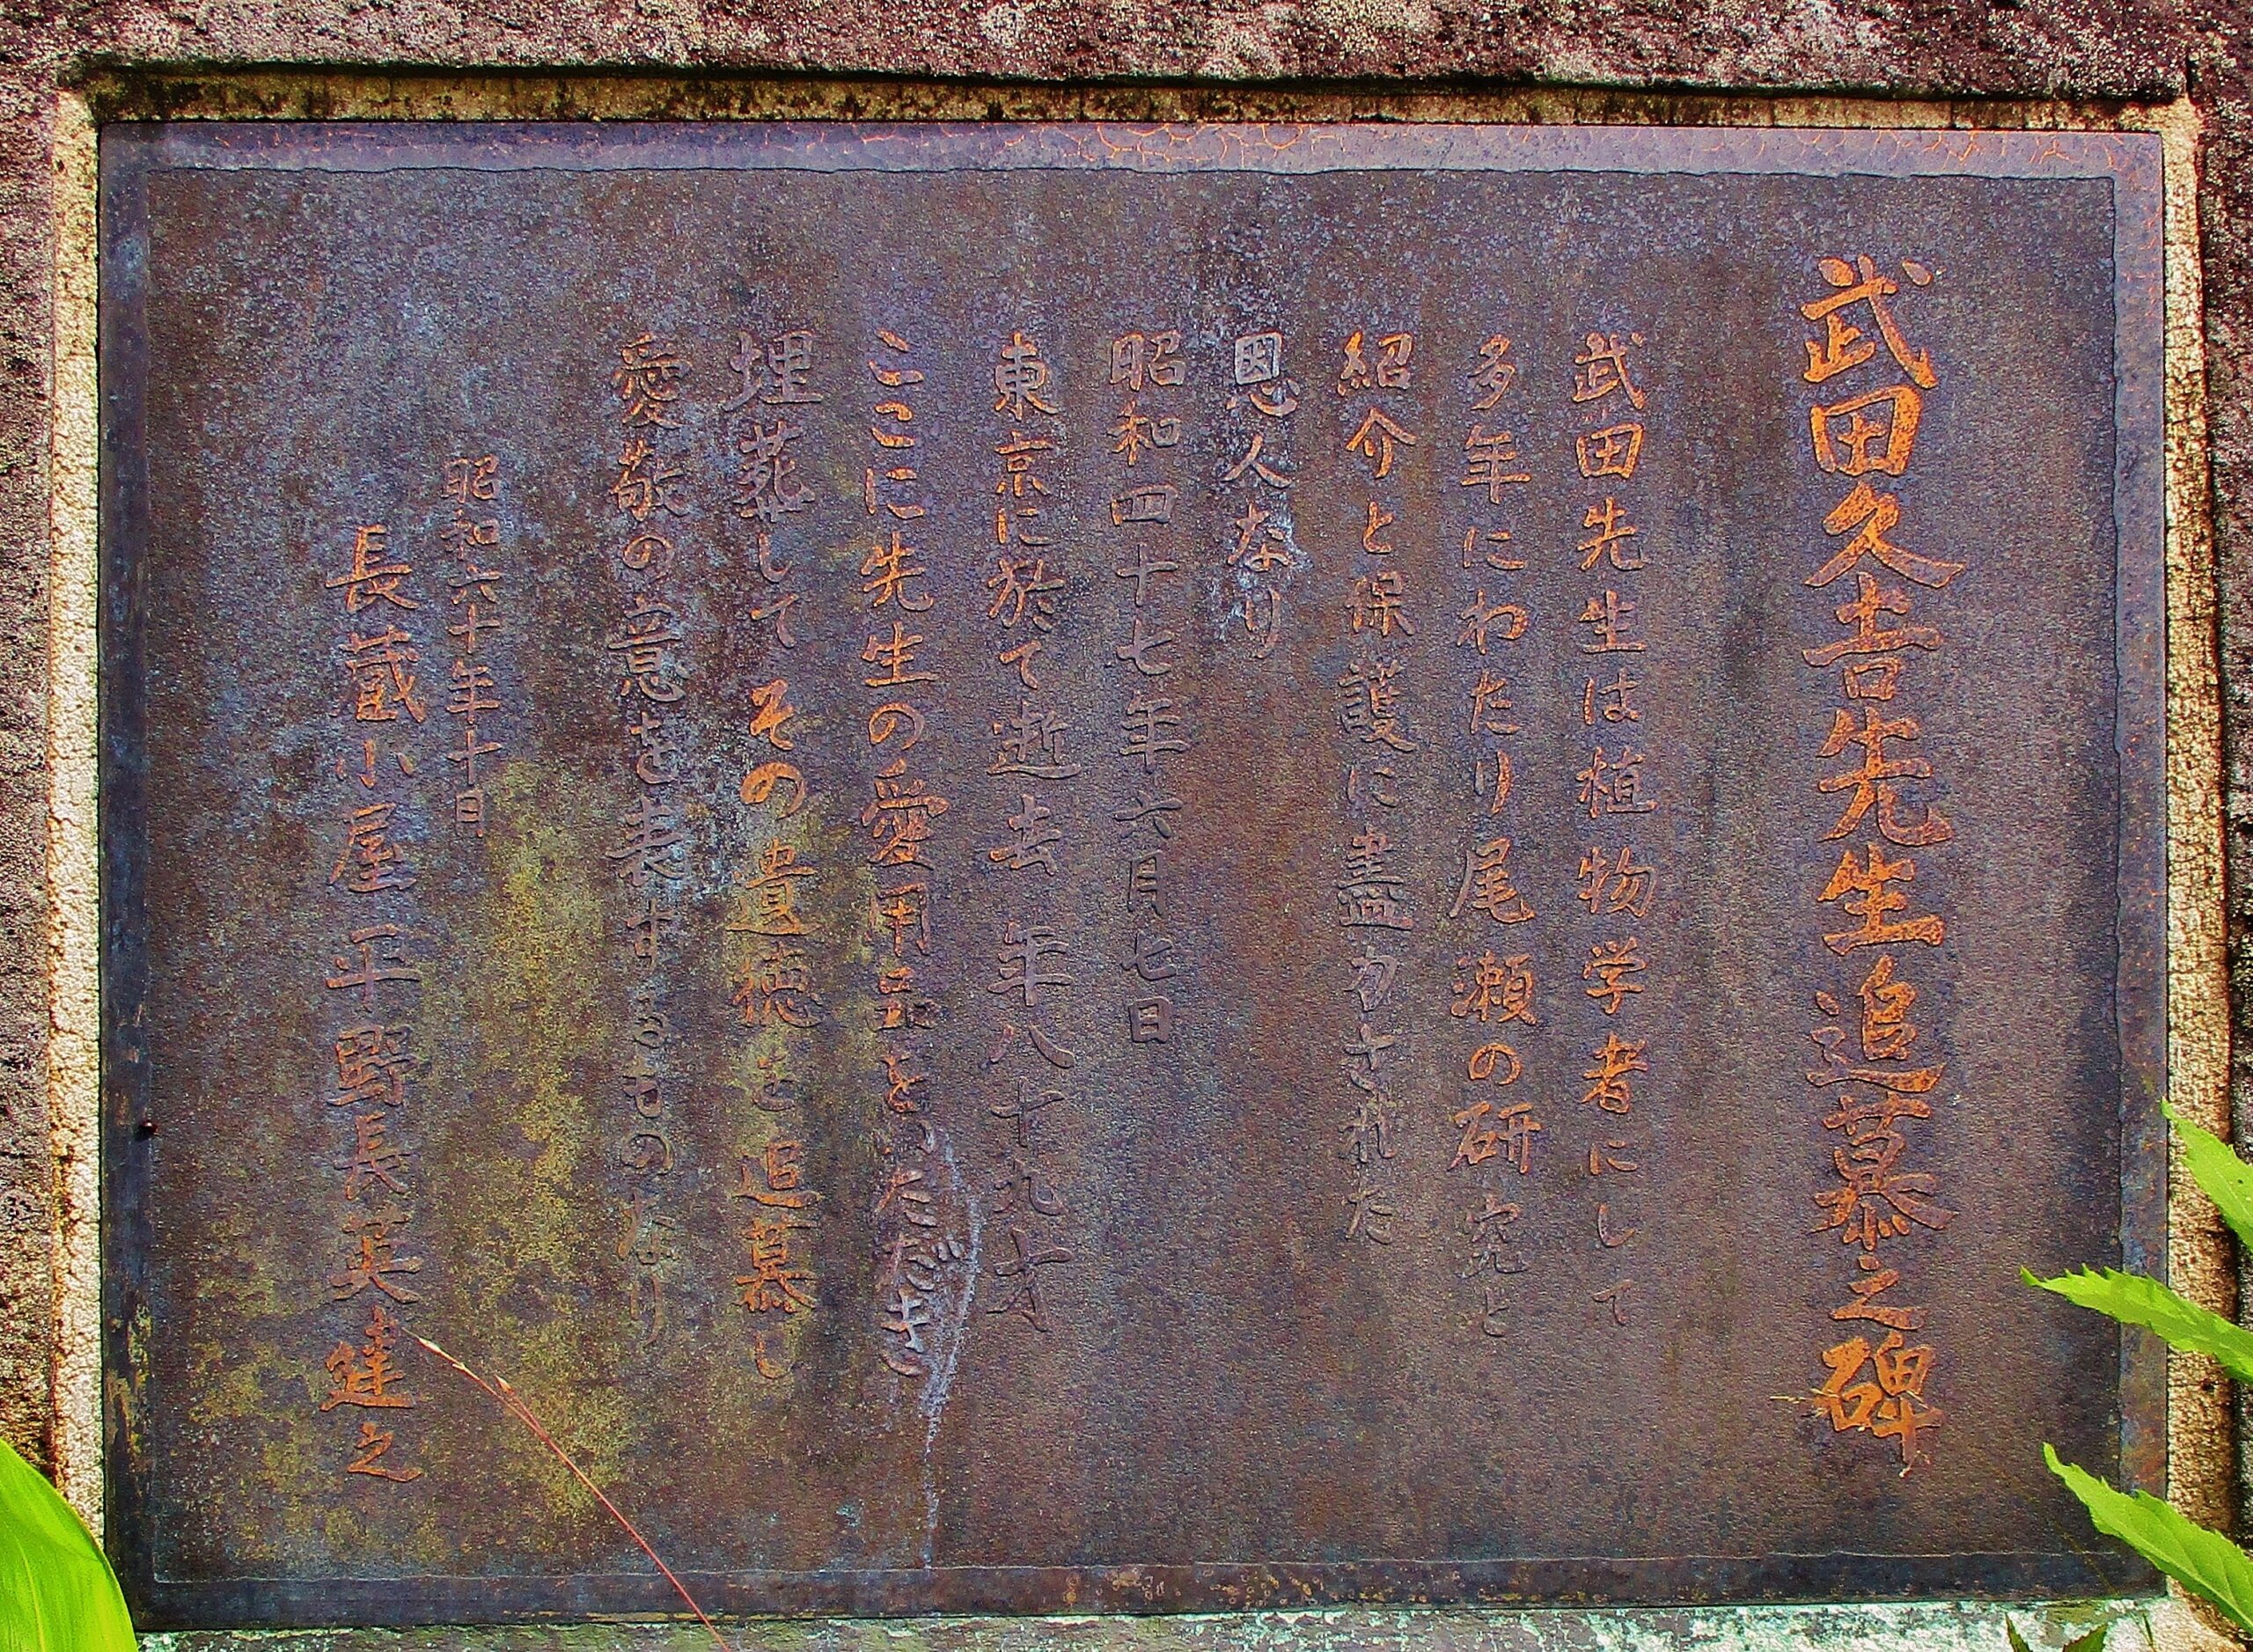 武田久吉先生追慕之碑
武田先生は植物学者にして
多年にわたり尾瀬の研究と
紹介と保護に盡力された
恩人なり
昭和四十七年六月七日
東京に於て逝去 年八十九才
ここに先生の愛用品をいただき
埋葬して その遺徳を追慕し
愛敬の意を表するものなり
昭和六十年十月
長蔵小屋 平野長英建之